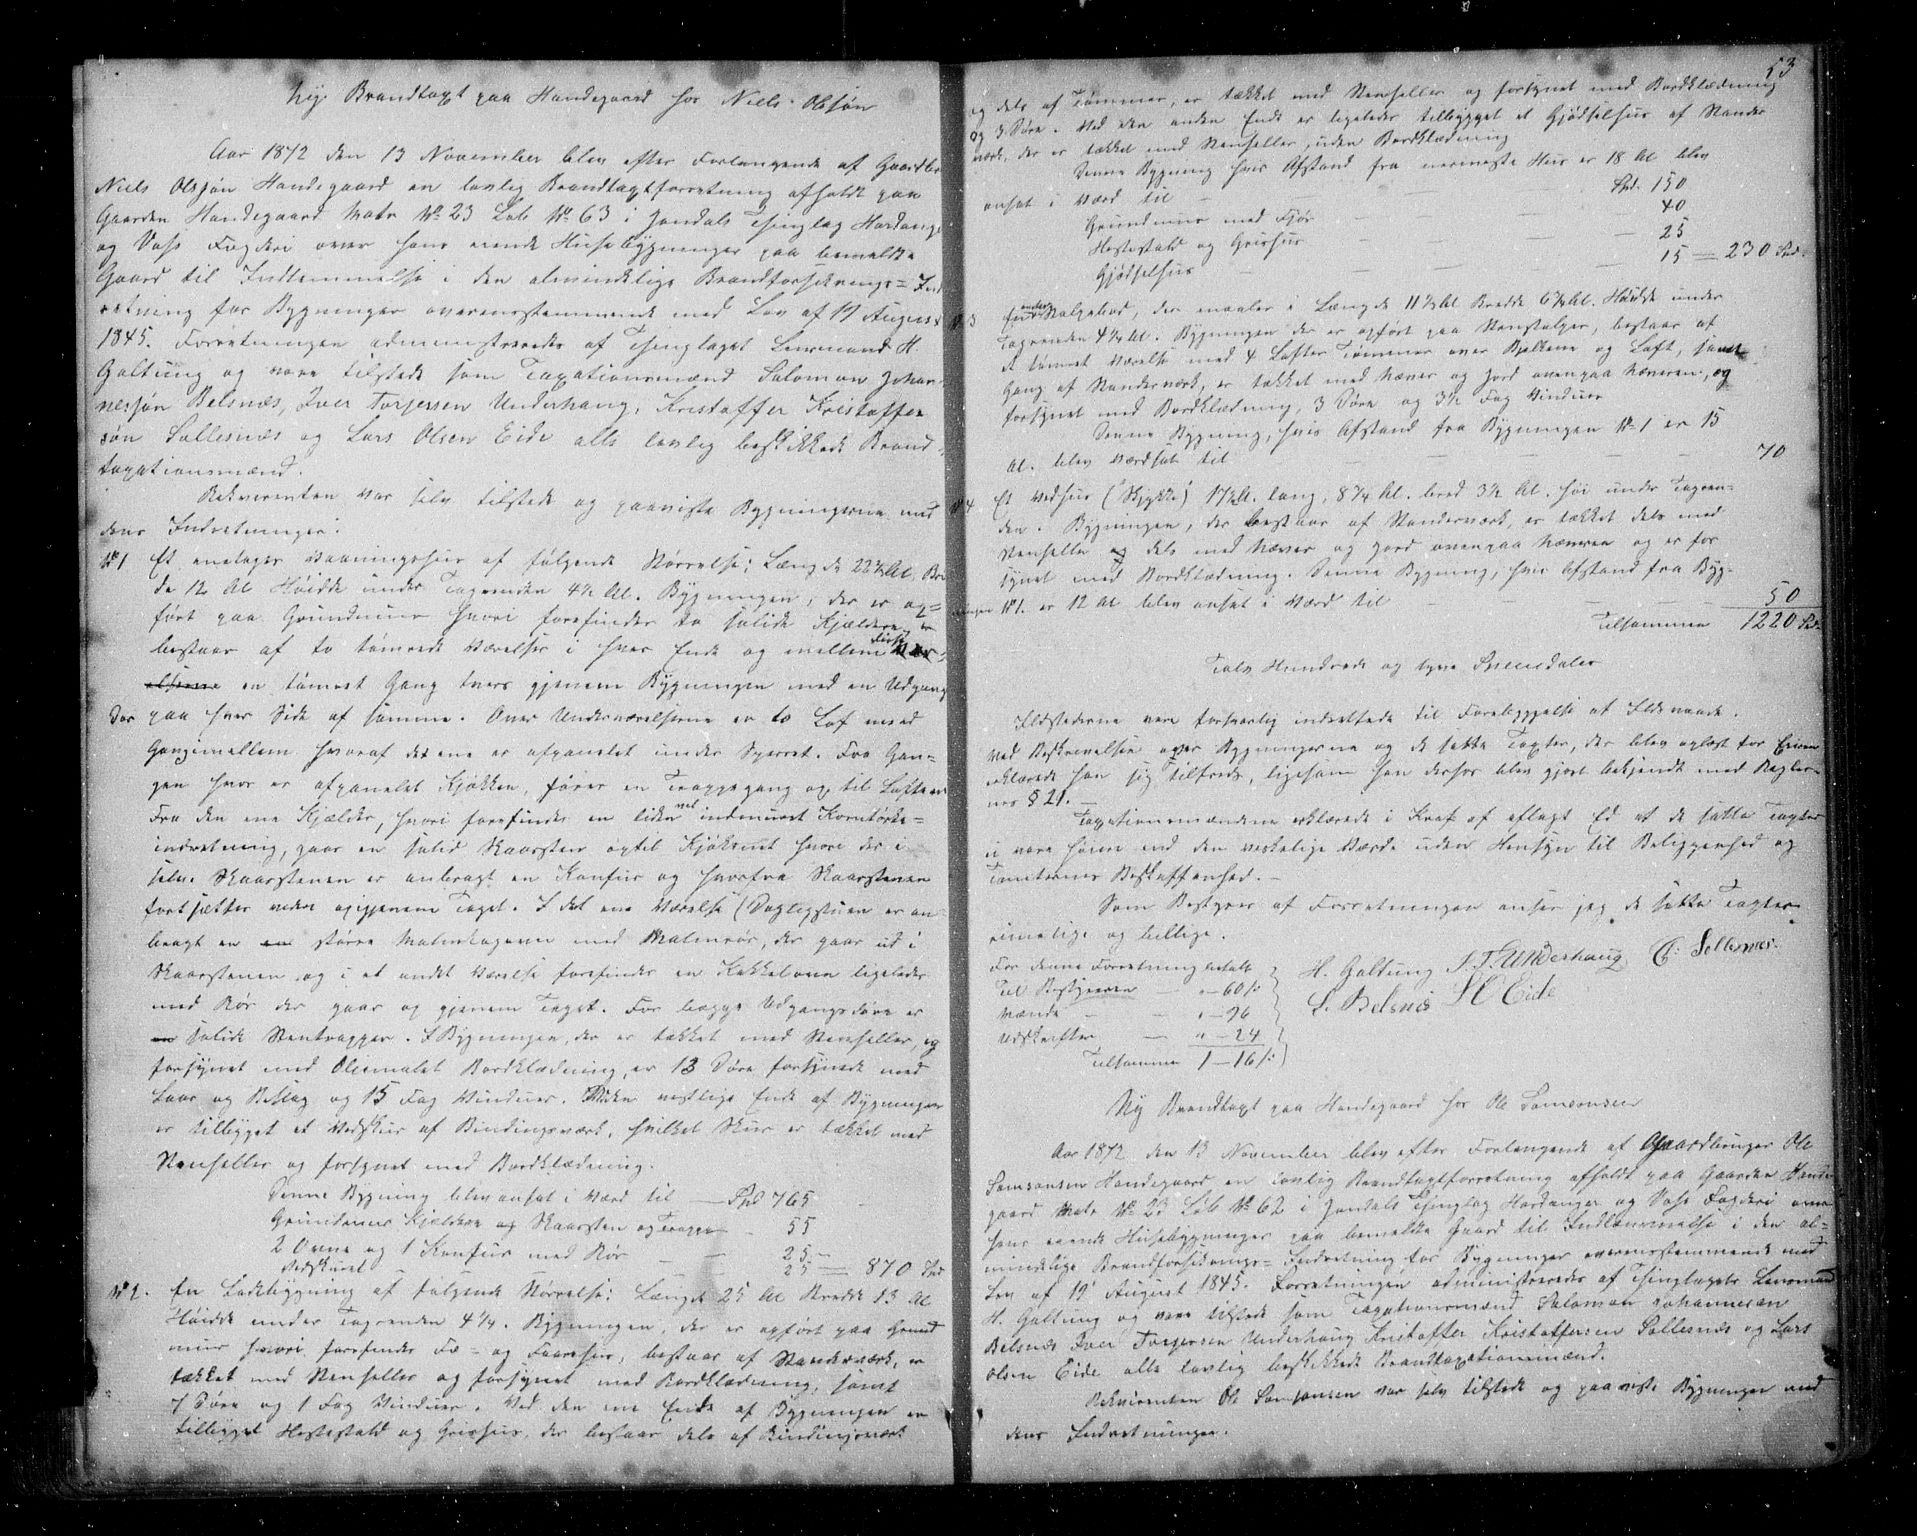 Ny Brandtaxt paa Handegaard hos Niels Olsøn
Aar 1872 den 13 November blev efter Forlangende af Gaardbr
Niels Olssøn Handegaard en lovlig Brandtaxtforretning afholdt paa
Gaarden Handegaard Matr No 23 Løb No 63 i Jondals Thinglag Hardang
og Voss Fogderi over hans eiende Huusebygninger paa bemeldte
Gaard til Indlemmelse i den almindelige Brandforsikrings=Ind
retning for Bygninger overensstemmende med Lov af 19 August
1845. Forretningen administreredes af Thinglaget Lensmand H.
Galtung og vare tilstede som Taxationsmænd Salomon Johan-
nessøn Belsnæs, Iver Torjersen Underhaug, Kristoffer Kristoffer
søn Sollesnæs og Lars Olsen Eide alle lovlig beskikkede Brand-
taxationsmænd.
Rekvirenten var selv tilstede og paaviste Bygningerne med
deres Indretninger:
No 1 Et enetages Vaaningshuus af følgende Størrelse: Længde 22½ Al, Bre
de 12 Al Høide under Tagrenden 4½ Al. Bygningen, der er op=
ført paa Grundmuur hvori forefindes to solide Kjældere, er
bestaar af to tømrede Værelser i hver Ende og mellem disse Vær-
elserne en tømret Gang tvers gjennem Bygningen med en Udgangs
Dør paa hver Side af samme. Over Underværelserne er to Loft med
Gangimellem hvoraf det ene er afpanelet under Sperret. Fra Gan-
gen hvor er afpanelet Kjøkken, fører en Trappegang op til Lofterne
Fra den ene Kjælder, hvori forefindes en liden vel indmuret Korntørke=
indretning, gaar en solid Skaarsten optil Kjøkkenet hvori der i
selve Skaarstenen er anbragt en Komfur og hvorfra Skaarstenen
fortsætter videre opigjennem Taget. I det ene Værelse (Dagligstuen er an-
bragt en en større Malmetageovn med Malmrør, der gaar ud i
Skaarstenen og i et andet Værelse forefindes en Kakkelovn ligeledes
med Rør der gaar op gjennem Taget. For begge Udgangsdøre er
en solide Stentrapper. I Bygningen, der er tækket med Stenheller, og
forsynet med Oliemalet Bordklædning, er 13 Døre forsynede med
Laas og Beslag og 15 Fag Vinduer. Ved den vestlige Ende af Bygningen
er tilbygget et Vedskur af Bindingsværk, hvilket Skur er tækket med
Stenheller og forsynet med Bordklædning.
Denne Bygning blev ansat i Værd til — Spd 765
Grundmuur Kjældere og Skaarsten og Trappe — 55
2 Ovne og 1 Komfur med Rør — 25 —
Vedskuret — 25 = 870 Spd
No 2. En Ladebygning af følgende Størrelse: Længde 25 Al Bredde 13 Al
Høide under Tagrenden 4¼. Bygningen, der er opført paa Grund
muur hvori forefindes Fæ= og Faarehus, bestaar af Standerværk, er
tækket med Stenheller og forsynet med Bordklædning, samt
7 Døre og 1 Fag Vinduer. Ved den ene Ende af Bygningen er
tilbygget Hestestald og Grisehus, der bestaar dels af Bindingsværk
53
og dels af Tømmer, er tækket med Stenheller og forsynet med Bordklædning
og 3 Døre. Ved den anden Ende er ligeledes tilbygget et Gjødselhuus af Stander
værk, der er tækket med Stenheller, uden Bordklædning
Denne Bygning hvis Afstand fra nærmeste Huus er 18 Al blev
ansat i Værd til — Spd. 150
Grundmuur med Fjøs — 40
Hestestald og Grishuus — 25
Gjødselhuus — 15 = 230 Spd.
No 3 En Stolpebod, der maaler i Længde 11½ Al Bredde 6¾ Al. Høide under
Tagrenden 4¼ Al. Bygningen der er opført paa Stenstolper, bestaar af
et tømret Værelse med 4 Lofter Tømmer over Bjelkerne og Loft, samt
Gang af Standerværk, er tækket med Næver og Jord ovenpaa Næveren, og
forsynet med Bordklædning, 3 Døre og 3½ Fag Vinduer
Denne Bygning, hvis Afstand fra Bygningen No 1 er 15
Al. blev værdsat til — 70
No 4 Et Vedhuus (Skykkje) 17½ Al. lang, 8¾ Al. bred 3½ Al. høi under Tagren-
den. Bygningen, der bestaar af Standerværk, er tækket dels med
Stenheller og dels med Næver og Jord ovenpaa Næveren og er for
synet med Bordklædning. Denne Bygning, hvis Afstand fra Byg-
ningen No 1. er 12 Al blev ansat i Værd til — 50
Tilsammen 1220 Spd.
Tolv Hundrede og tyve Speciedaler
Ildstederne vare forsvarlig indrettede til Forebyggelse af Ildsvaade.
Ved Beskrivelsen over Bygningerne og de satte Taxter, der blev oplæst for Eieren
erklærede han sig tilfreds, ligesom han derhos blev gjort bekjendt med Regler-
nes § 21. —
Taxationsmændene erklærede i Kraft af aflagt Ed at de satte Taxter
ei vare høiere end den virkelige Værde uden Hensyn til Beliggenhed og
Tomternes Beskaffenhed. —
Som Bestyrer af Forretningen anser jeg de satte Taxter
rimelige og billige.
For denne Forretning betalt
Til Bestyreren — " — 60 ß
Mænde — " — 96
Udskrifter — " — 24
Tilsammen 1 — 16 ß
H. Galtung I. T. Underhaug C: Sollesnæs.
S. Belsnæs L O Eide
Ny Brandtaxt paa Handegaard hos Ole Samsonsen
Aar 1872 den 13 November blev efter Forlangende af Gaardbruger Ole
Samsonsen Handegaard en lovlig Brandtaxtforretning afholdt paa Gaarden Hande
gaard Matr No 23 Løb No 62 i Jondals Thinglag Hardanger og Voss Fogderi over
hans eiende Husebygninger paa bemeldte Gaard til Indlemmelse i den al=
mindelige Brandforsikrings=Indretning for Bygninger overensstemmende med
Lov af 19 August 1845. Forretningen administreredes af Thinglagets Lensmand
H. Galtung og vare tilstede som Taxationsmænd Salomon Johannesen
Belsnæs Iver Torjersen Underhaug Kristoffer Kristoffersen Sollesnæs og Lars
Olsen Eide alle lovlig beskikkede Brandtaxationsmænd.
Rekvirenten Ole Samsonsen var selv tilstede og paaviste Bygninger med
deres Indretninger.